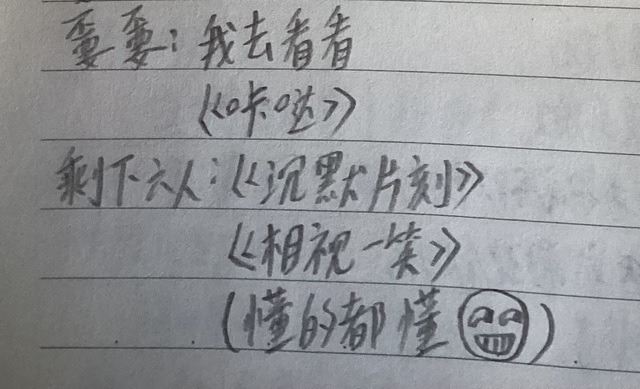 嫑嫑：我去看看
《咔哒》
剩下六人：《沉默片刻》
《相视一笑》
（懂的都懂）